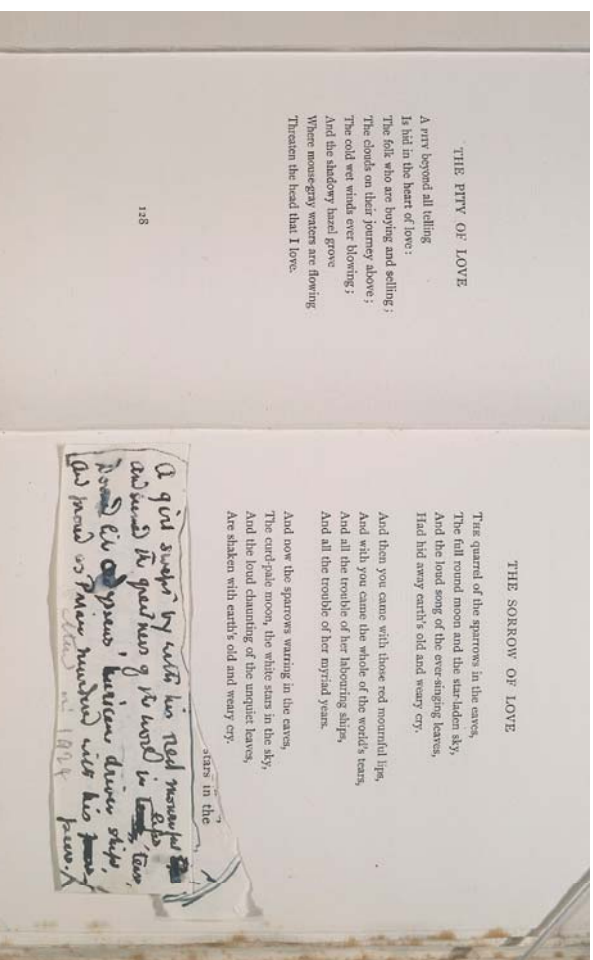 THE PITY OF LOVE
A PITY beyond all telling
Is hid in the heart of love:
The folk who are buying and selling;
The clouds on their journey above;
The cold wet winds ever blowing;
And the shadowy hazel grove
Where mouse-gray waters are flowing
Threaten the head that I love.
128
THE SORROW OF LOVE
THE quarrel of the sparrows in the eaves,
The full round moon and the star-laden sky,
And the loud song of the ever-singing leaves,
Had hid away earth's old and weary cry.
And then you came with those red mournful lips,
And with you came the whole of the world's tears,
And all the trouble of her labouring ships,
And all the trouble of her myriad years.
And now the sparrows warring in the eaves,
The curd-pale moon, the white stars in the sky,
And the loud chaunting of the unquiet leaves,
Are shaken with earth's old and weary cry.
stars in the
A girl swept by with his red mournful
lips
and seemed the greatness of the world in tears,
Doomed like Odysseus' hurricane driven ships,
and proud as Priam murdered with his
peers.
in 1924